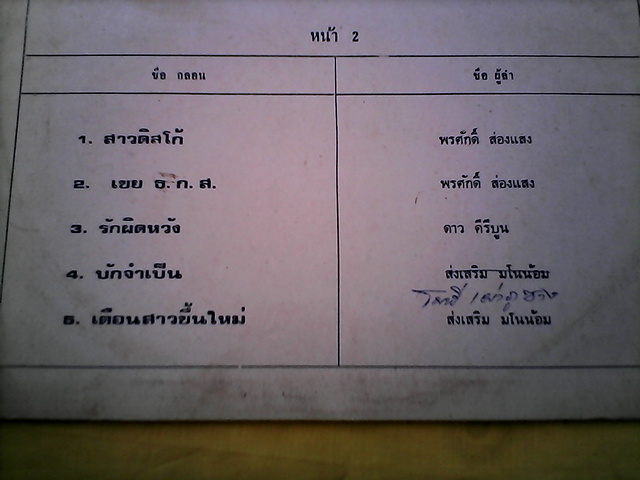 หน้า 2
ชื่อ กลอน ชื่อ ผู้ลำ
1. สาวดิสโก้ พรศักดิ์ ส่องแสง
2. เขย ธ. ก. ส. พรศักดิ์ ส่องแสง
3. รักผิดหวัง ดาว คีรีบูน
4. บักจำเป็น ส่งเสริม มโนน้อม
5. เตือนสาวยื้นใหม่ ส่งเสริม มโนน้อม